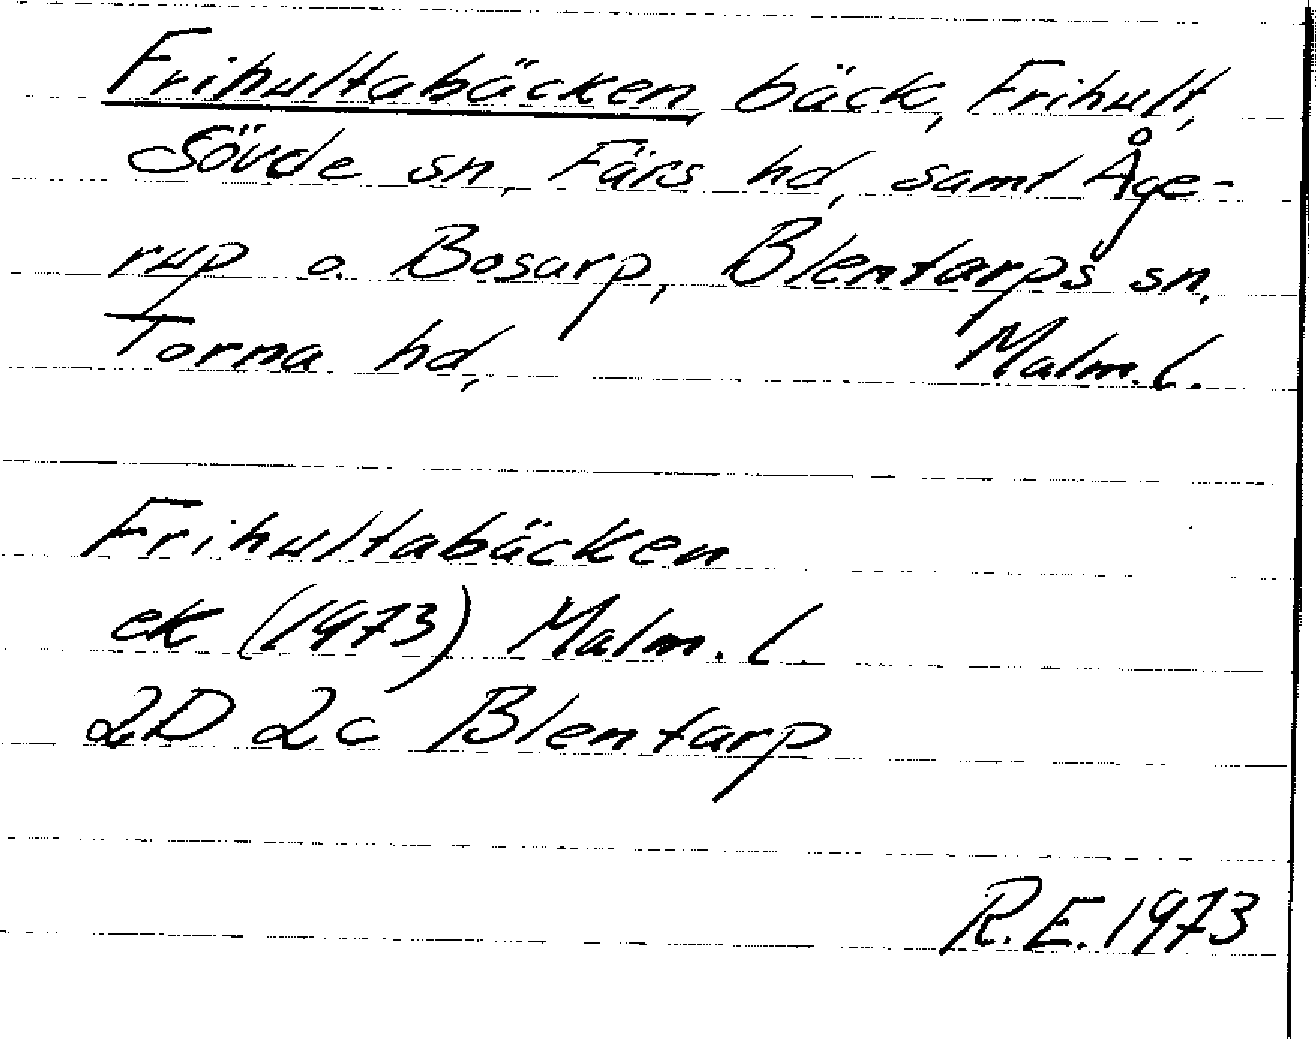 Frihultabäcken, bäck, Frihult,
Sövde sn, Färs hd, samt Åge-
rup o. Bosarp, Blentarps sn,
Torna hd, Malm. l.
Frihultabäcken
ek (1973) Malm. l.
2D 2c Blentarp
R.E. 1973